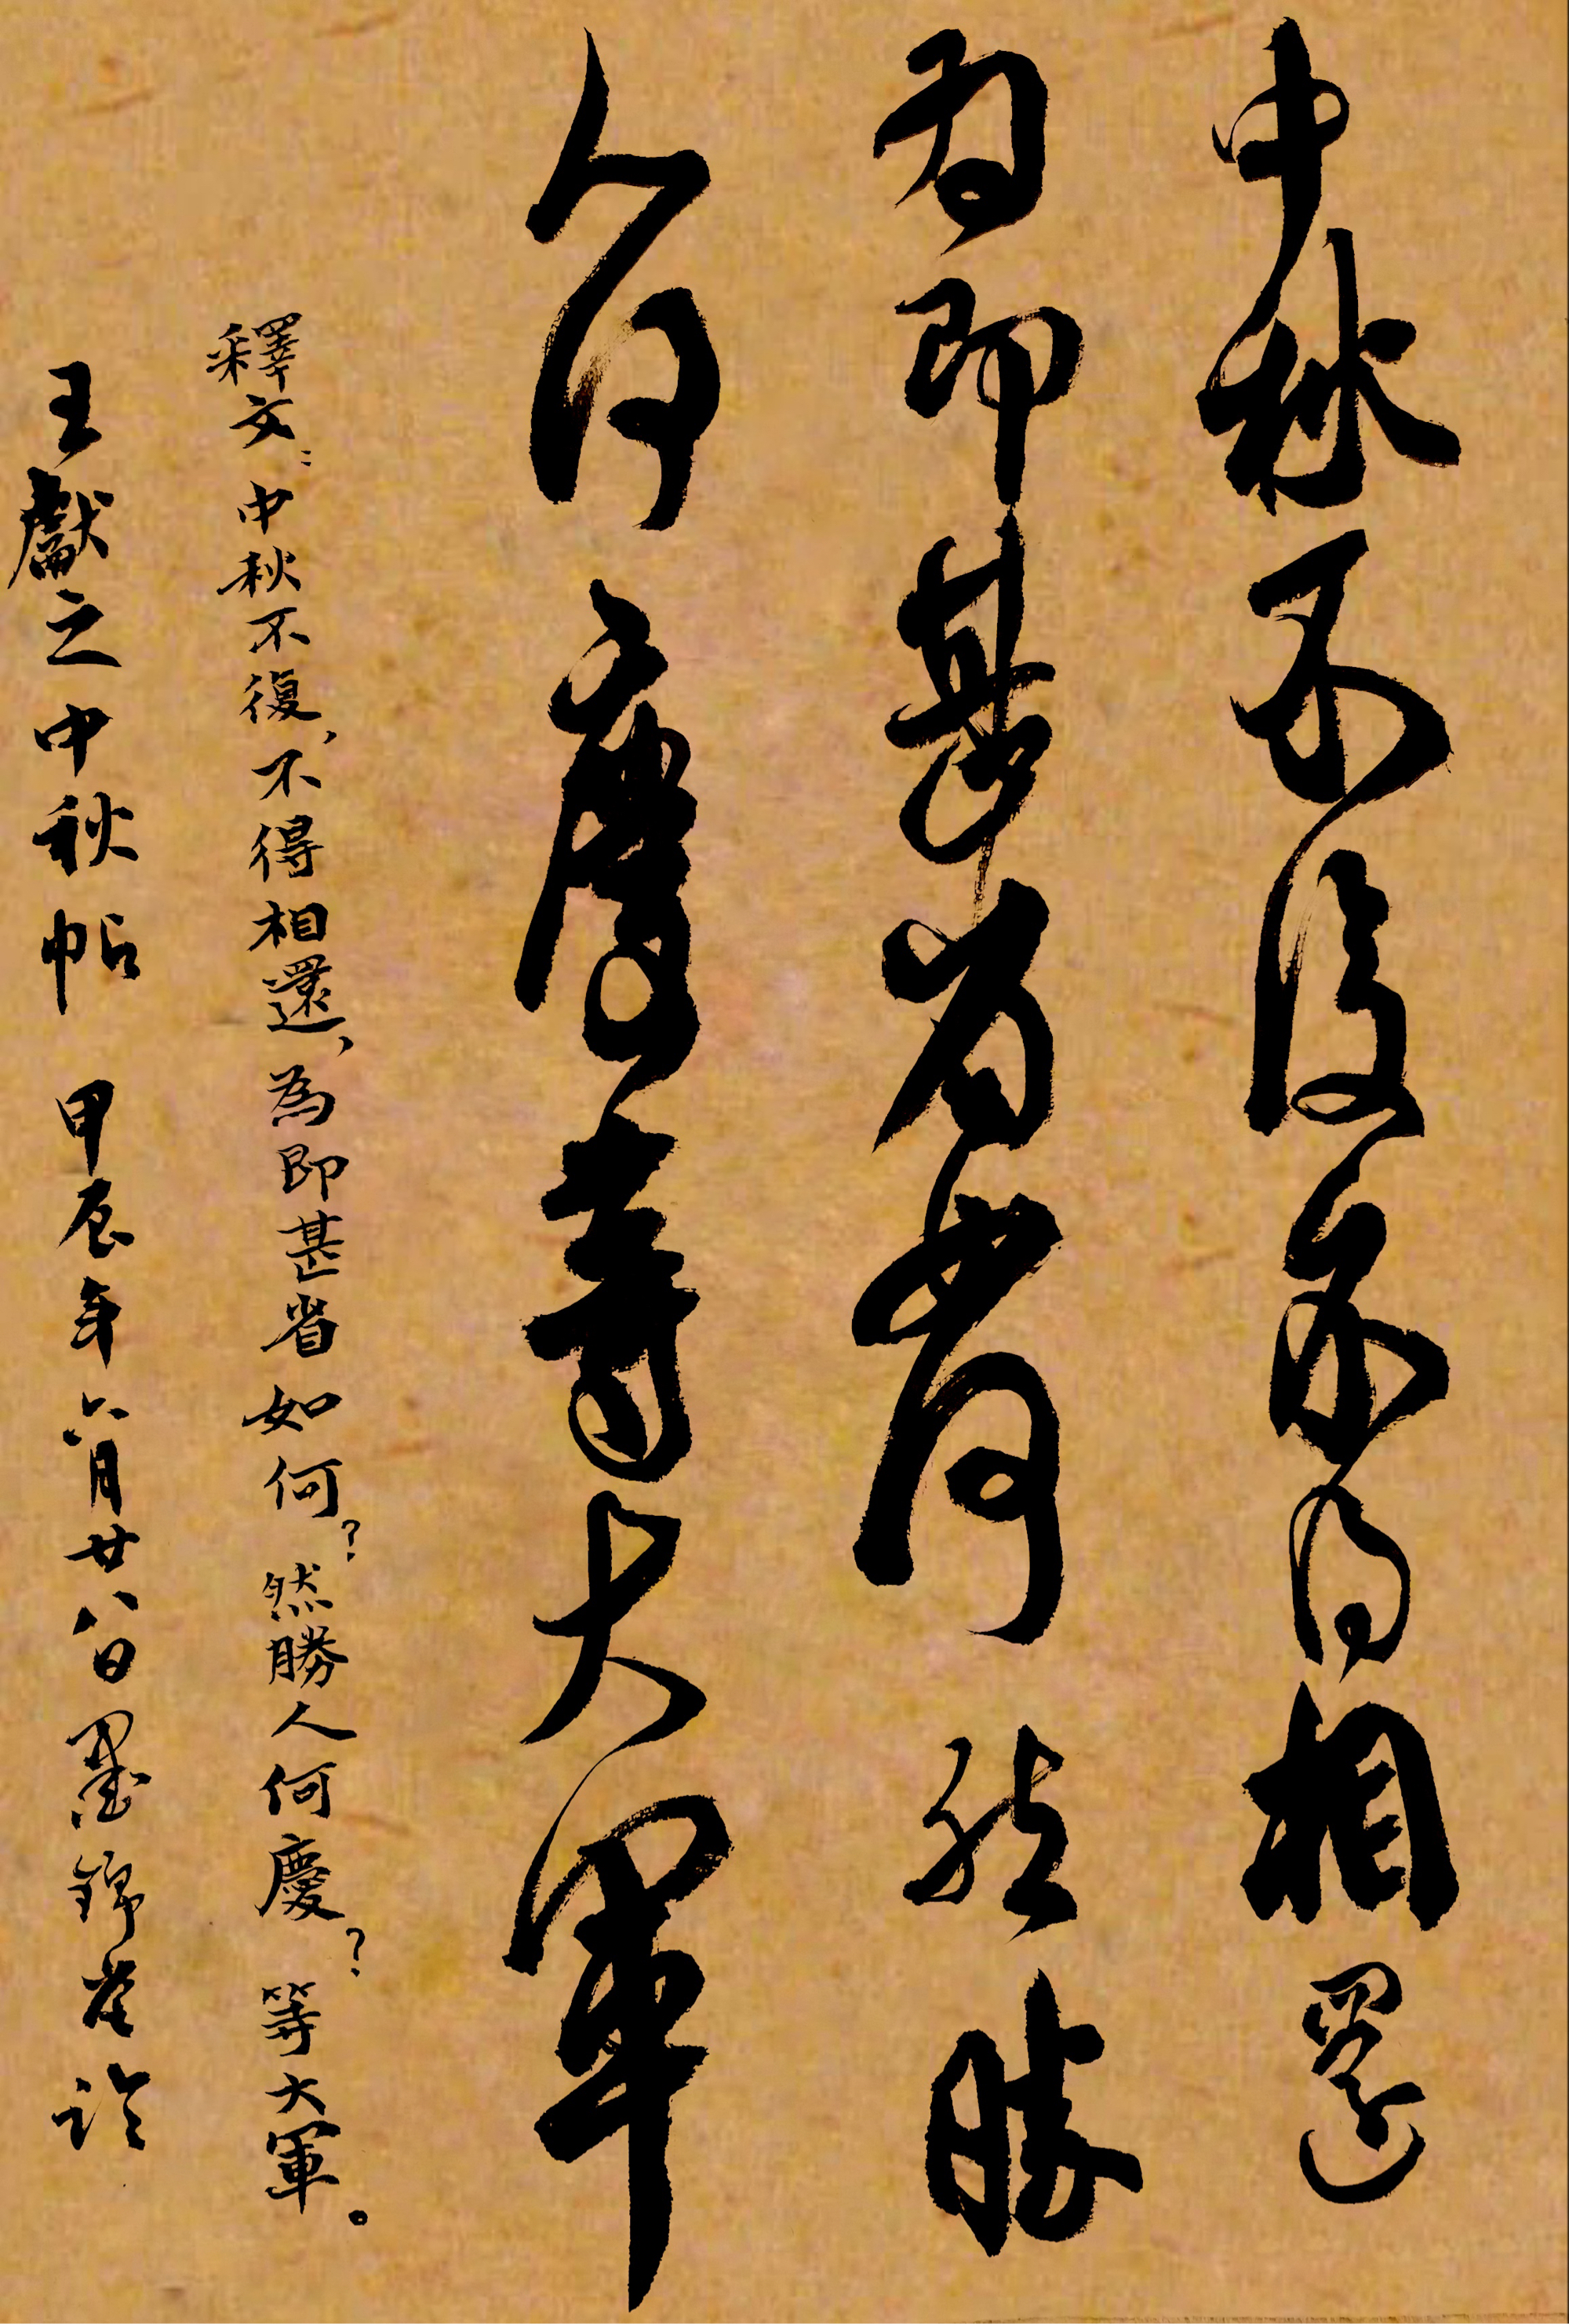 中秋不復不得相還
為即甚省如何然勝
人何慶等大軍
釋文：中秋不復、不得相還、為即甚省如何？然勝人何慶？等大軍。
王獻之中秋帖 甲辰年六月廿八日墨錦堂